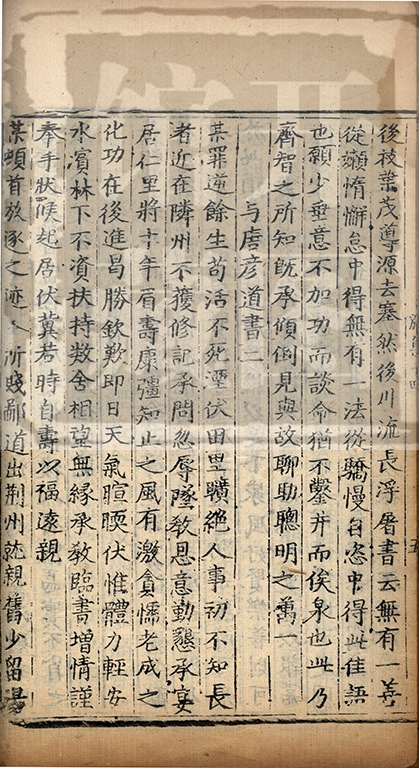 後枝葉茂導源去塞然後川流長浮屠書云無有一善
從嬾惰懈怠中得無有一法從驕慢自恣中得此佳語
也願少垂意不加功而談命猶不鑿井而俟泉也此乃
齊智之所知既承傾倒見與故聊助聰明之萬一
與唐彥道書二
某罪逆餘生苟活不死湮伏田里曠絕人事初不知長
者近在隣州不獲修記承問忽辱墜教恩意勤懇承宴
居仁里將十年眉壽康彊知止之風有激貪懦老成之
化功在後進曷勝欽歎即日天氣暄暖伏惟體力輕安
水濱林下不資扶持數舍相望無緣承教臨書增情謹
奉手狀候起居伏冀若時自壽以福遠親
某頓首放逐之迹人所賤鄙道出荆州就親舊少留湯
五